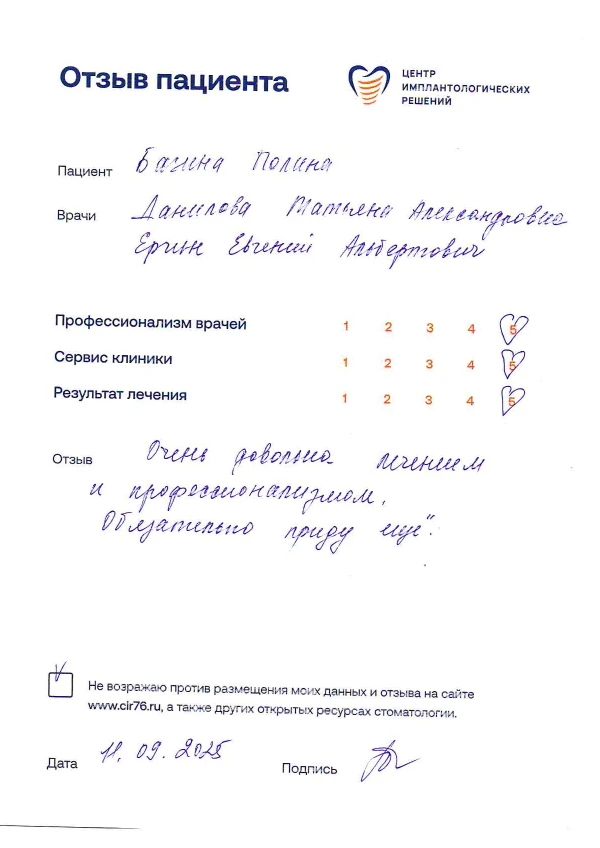 Отзыв пациента
ЦЕНТР
ИМПЛАНТОЛОГИЧЕСКИХ
РЕШЕНИЙ
Пациент Багина Полина
Врачи Данилова Татьяна Александровна
Ергин Евгений Альбертович
Профессионализм врачей 1 2 3 4 5
Сервис клиники 1 2 3 4 5
Результат лечения 1 2 3 4 5
Отзыв Очень довольна лечением
и профессионализмом.
Обязательно приду еще".
Не возражаю против размещения моих данных и отзыва на сайте
www.cir76.ru, а также других открытых ресурсах стоматологии.
Дата 11.09.2025 Подпись